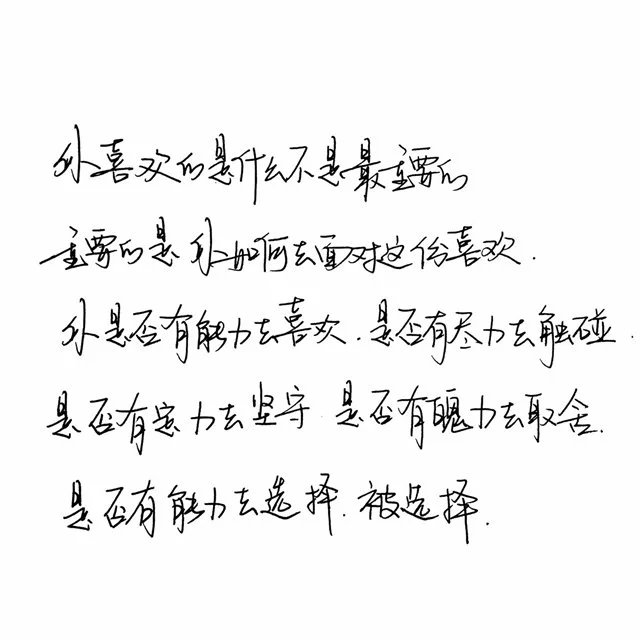 你喜欢的是什么不是最重要的
重要的是你如何去面对这份喜欢.
你是否有能力去喜欢.是否有尽力去触碰.
是否有定力去坚守 是否有魄力去取舍.
是否有能力去选择.被选择.